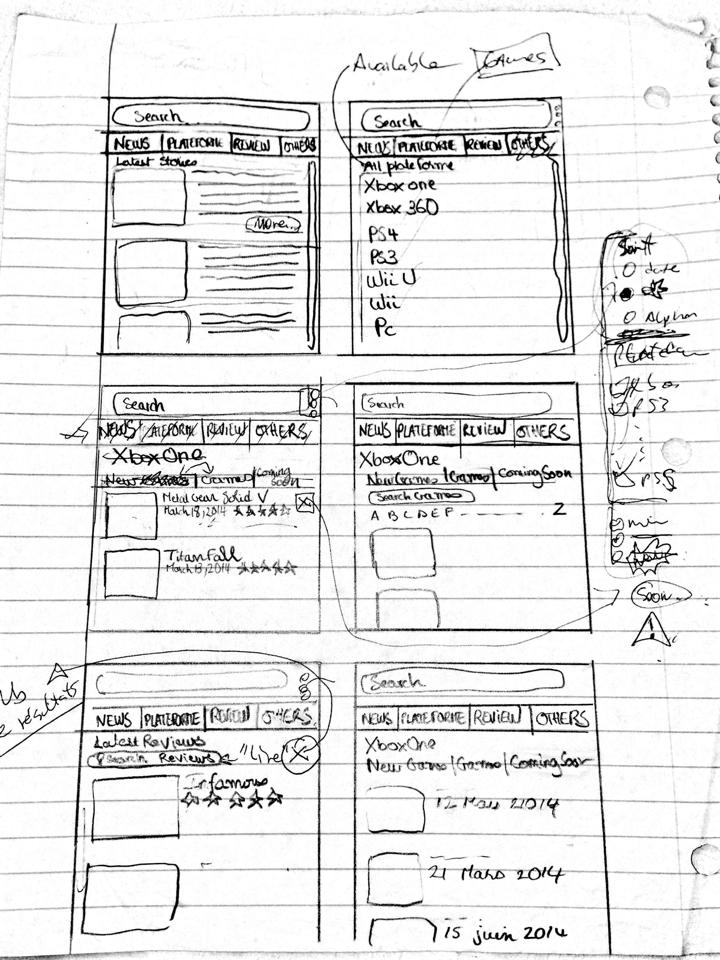 Available GAMES
Search
NEWS PLATEFORME REVIEW OTHERS
Latest Stories
More...
Search
NEWS PLATEFORME REVIEW OTHERS
All plateforme
Xbox one
Xbox 360
PS4
PS3
Wii U
Wii
Pc
date
Alpha
PS3
Search
NEWS REVIEW OTHERS
XboxOne
New Games Coming Soon
Metal Gear Solid V
March 18, 2014
TitanFall
March 13, 2014
Search
NEWS PLATEFORME REVIEW OTHERS
XboxOne
New Games | Games | Coming Soon
Search Games
A B C D E F - - - - - - Z
Soon
!
NEWS PLATEFORME REVIEW OTHERS
Latest Reviews
Search Reviews "Live" X
Infamous
Search
NEWS PLATEFORME REVIEW OTHERS
XboxOne
New Games | Games | Coming Soon
12 Mars 2014
21 Mars 2014
15 juin 2014